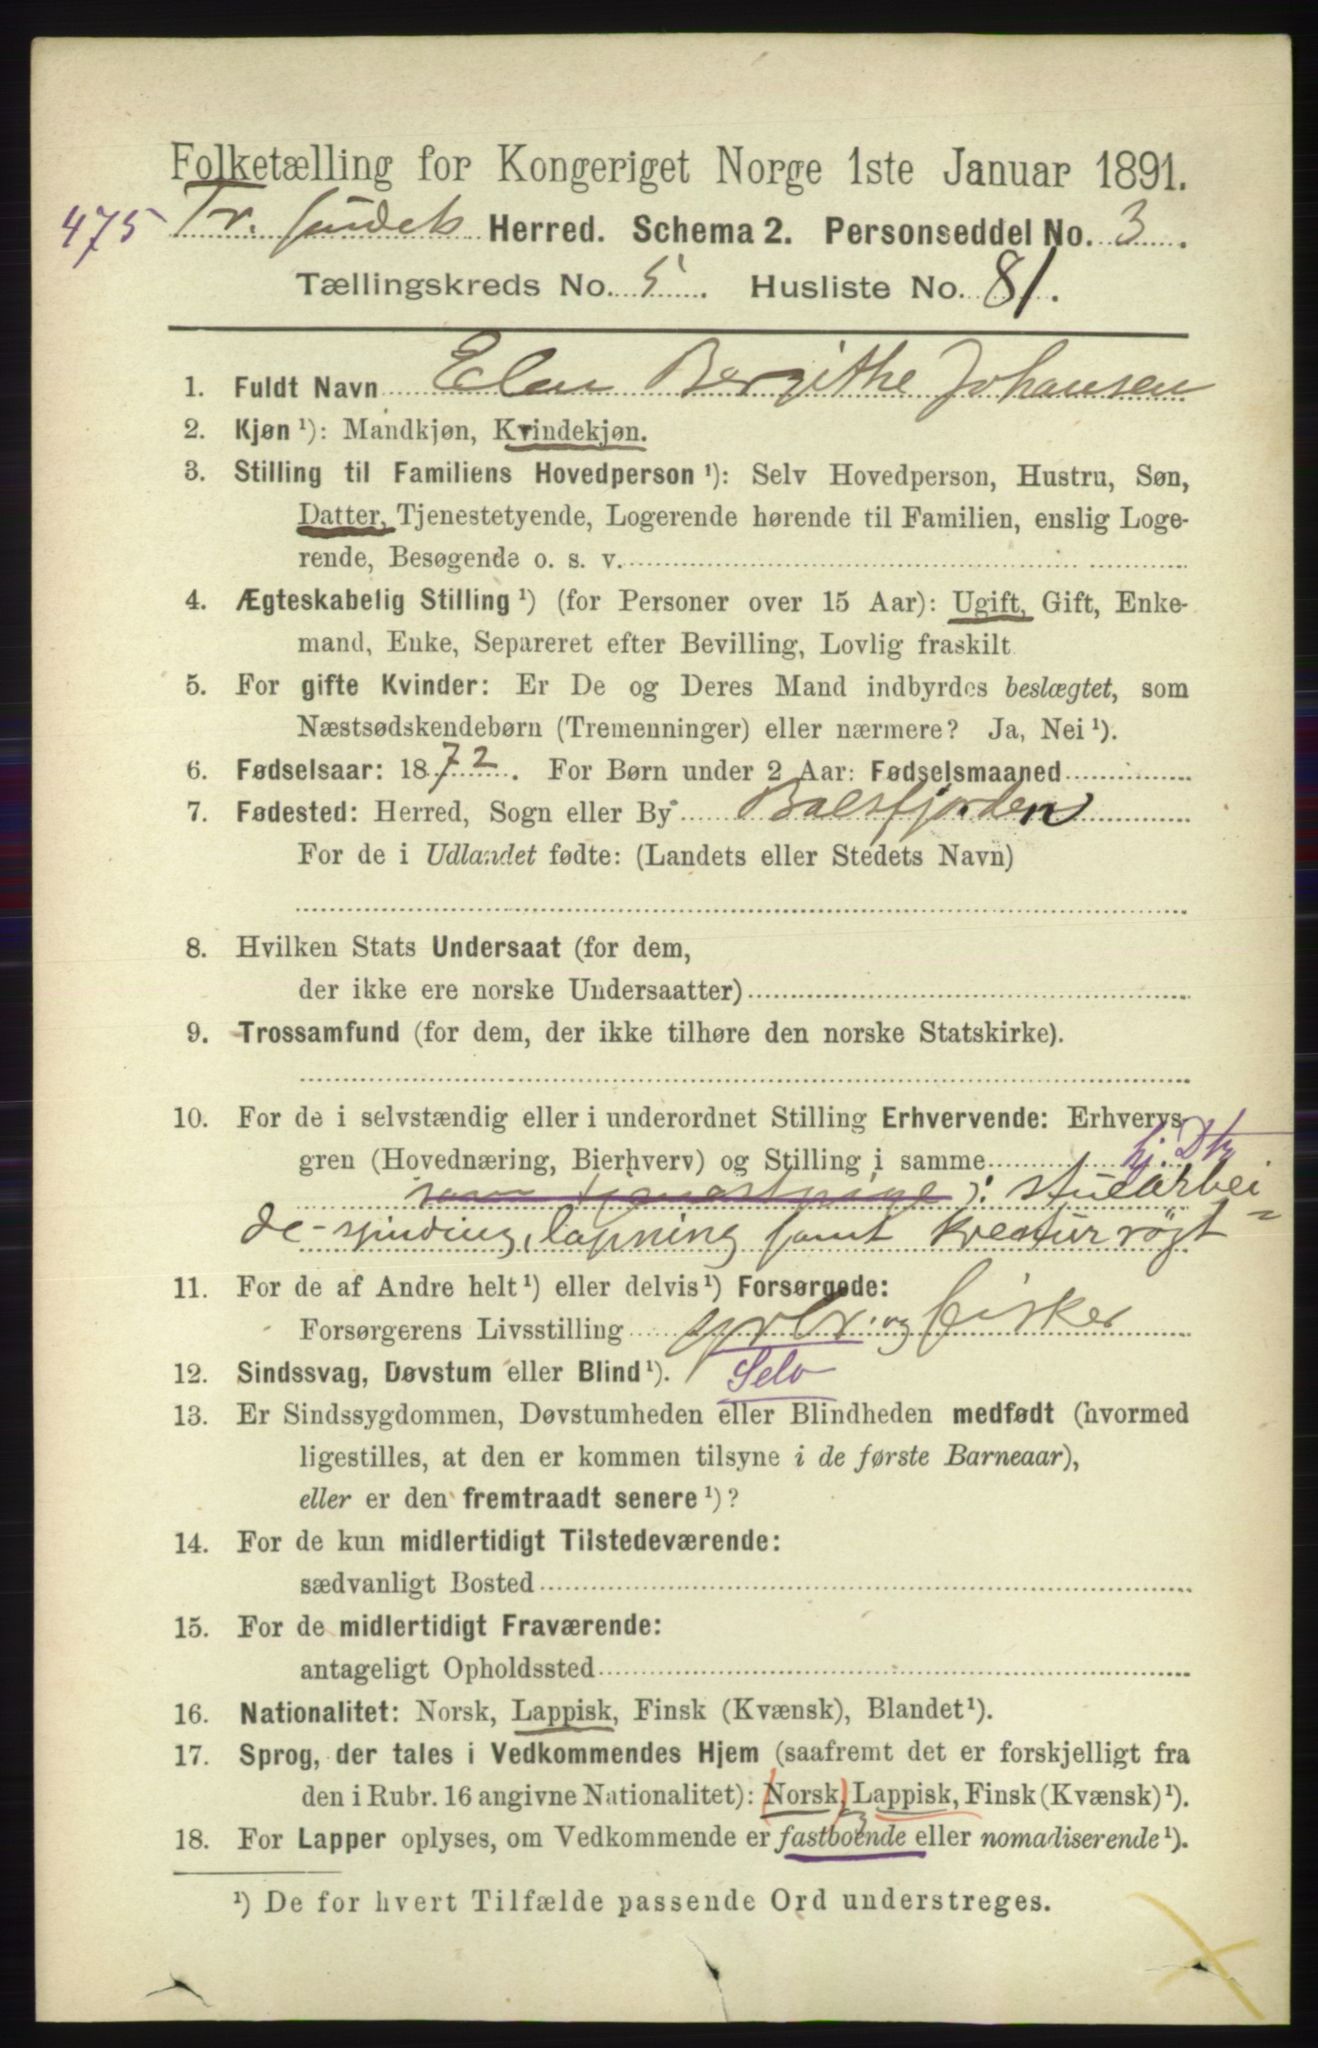 Folketælling for Kongeriget Norge 1ste Januar 1891.
475 Tr. sundets Herred. Schema 2. Personseddel No. 3.
Tællingskreds No. 5. Husliste No. 81.
1. Fuldt Navn Elen Bergithe Johansen
2. Kjøn ¹): Mandkjøn, Kvindekjøn.
3. Stilling til Familiens Hovedperson ¹): Selv Hovedperson, Hustru, Søn,
Datter, Tjenestetyende, Logerende hørende til Familien, enslig Loge-
rende, Besøgende o. s. v.
4. Ægteskabelig Stilling ¹) (for Personer over 15 Aar): Ugift, Gift, Enke-
mand, Enke, Separeret efter Bevilling, Lovlig fraskilt
5. For gifte Kvinder: Er De og Deres Mand indbyrdes beslægtet, som
Næstsødskendebørn (Tremenninger) eller nærmere? Ja, Nei ¹).
6. Fødselsaar: 1872. For Børn under 2 Aar: Fødselsmaaned
7. Fødested: Herred, Sogn eller By Balsfjorden
For de i Udlandet fødte: (Landets eller Stedets Navn)
8. Hvilken Stats Undersaat (for dem,
der ikke ere norske Undersaatter)
9. Trossamfund (for dem, der ikke tilhøre den norske Statskirke).
10. For de i selvstændig eller i underordnet Stilling Erhvervende: Erhvervs-
gren (Hovednæring, Bierhverv) og Stilling i samme hj. Dtr
som tjenestpige): stuearbei
de-spinding, lapning samt kreaturrøgt
11. For de af Andre helt ¹) eller delvis ¹) Forsørgede:
Forsørgerens Livsstilling og fisker
12. Sindssvag, Døvstum eller Blind ¹). Selv
13. Er Sindssygdommen, Døvstumheden eller Blindheden medfødt (hvormed
ligestilles, at den er kommen tilsyne i de første Barneaar),
eller er den fremtraadt senere ¹)?
14. For de kun midlertidigt Tilstedeværende:
sædvanligt Bosted
15. For de midlertidigt Fraværende:
antageligt Opholdssted
16. Nationalitet: Norsk, Lappisk, Finsk (Kvænsk), Blandet ¹).
17. Sprog, der tales i Vedkommendes Hjem (saafremt det er forskjelligt fra
den i Rubr. 16 angivne Nationalitet): Norsk, Lappisk, Finsk (Kvænsk) ¹).
18. For Lapper oplyses, om Vedkommende er fastboende eller nomadiserende ¹).
¹) De for hvert Tilfælde passende Ord understreges.